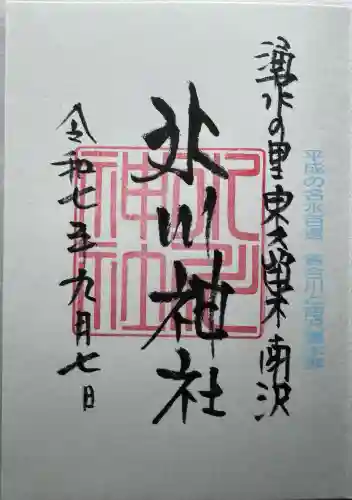 平成の名水百選 落合川と南沢湧水群
湧水の里東久留米南沢
氷川神社
氷川神社
令和七年九月七日